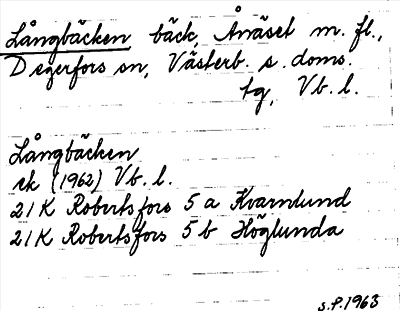 Långbäcken bäck, Ånäset m. fl.,
Degerfors sn, Västerb. s. doms.
tg, Vb. l.
Långbäcken
ek (1962) Vb. l.
21K Robertsfors 5 a Kvarnlund
21K Robertsfors 5 b Höglunda
S.P. 1963